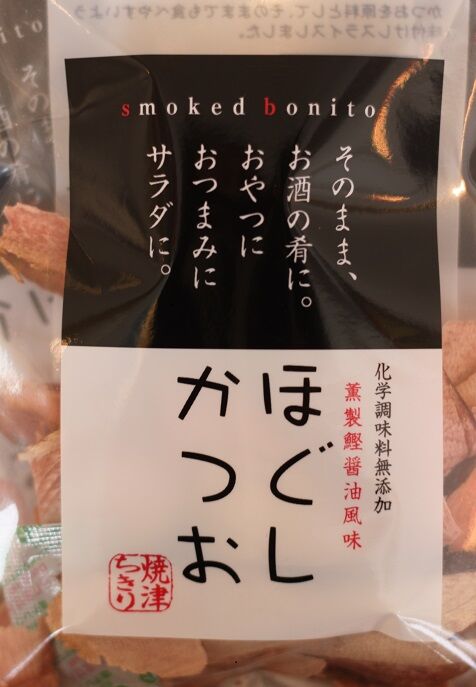 smoked bonito
そのまま、
お酒の肴に。
おやつに
おつまみに
サラダに。
化学調味料無添加
薫製鰹醤油風味
ほぐし
かつお
焼津
ちっきり